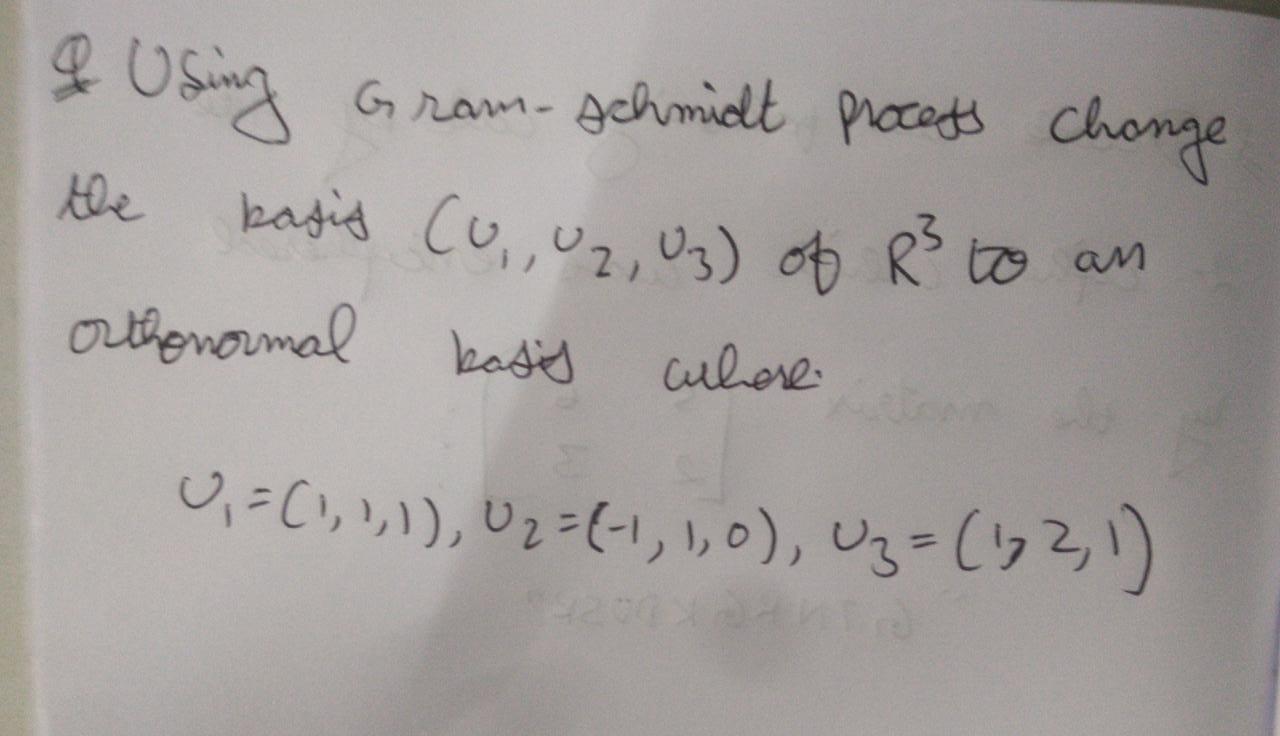 Q Using Gram-schmidt process change
the basis (U₁, U₂, U₃) of R³ to an
orthonormal basis where.
U₁=(1,1,1), U₂=(-1,1,0), U₃=(1,2,1)